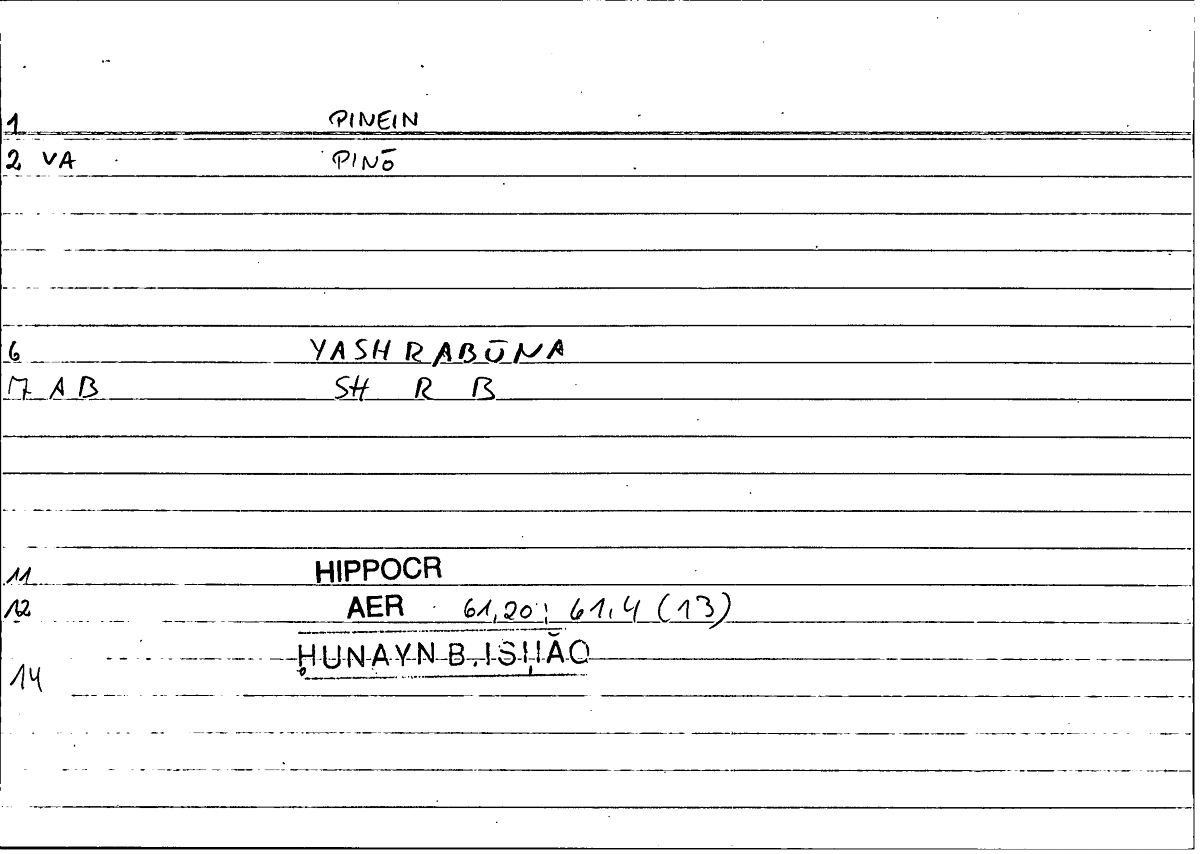 1 PINEIN
2 VA PINŌ
6 YASHRABŪNA
7 AB SH R B
11 HIPPOCR
12 AER 61,20; 61,4 (13)
ḤUNAYN B. ISḤĀQ
14